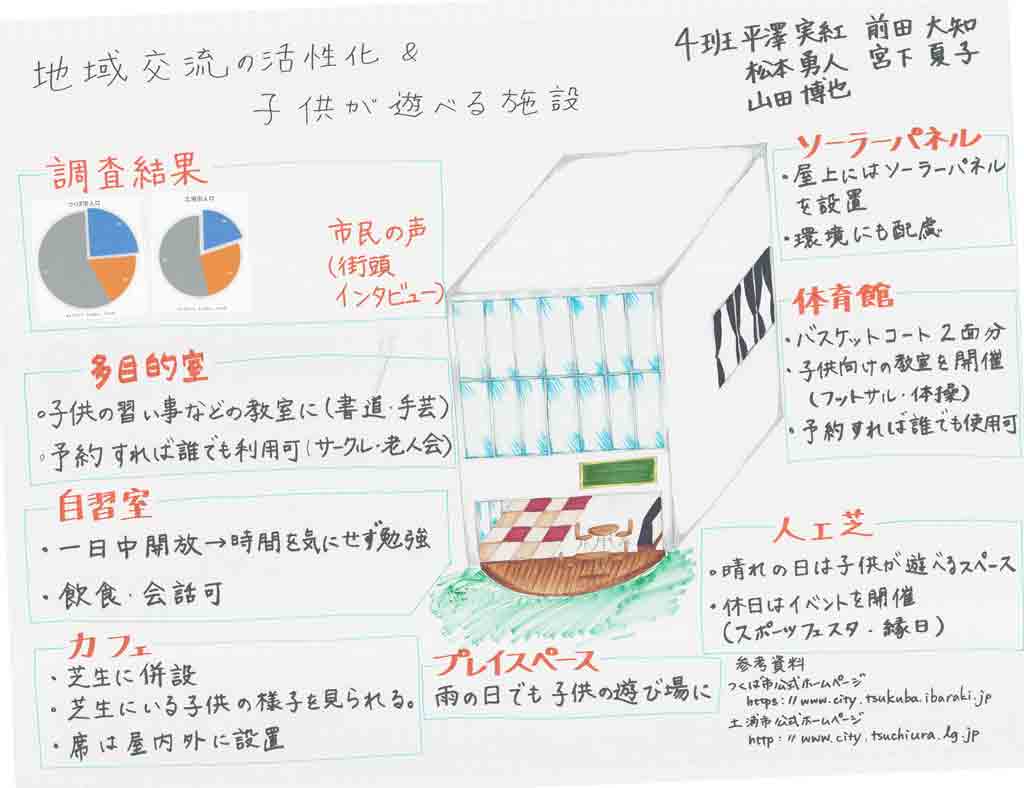 地域交流の活性化 &
子供が遊べる施設
4班 平澤 実紅 前田 大知
松本 勇人 宮下 夏子
山田 博也
調査結果
つくば市人口
土浦市人口
市民の声
(街頭
インタビュー)
多目的室
○子供の習い事などの教室に(書道・手芸)
○予約すれば誰でも利用可(サークル・老人会)
自習室
・一日中開放→時間を気にせず勉強
・飲食・会話可
カフェ
・芝生に併設
・芝生にいる子供の様子を見られる。
・席は屋内外に設置
プレイスペース
雨の日でも子供の遊び場に
ソーラーパネル
・屋上にはソーラーパネル
を設置
・環境にも配慮
体育館
・バスケットコート2面分
・子供向けの教室を開催
(フットサル・体操)
・予約すれば誰でも使用可
人工芝
○晴れの日は子供が遊べるスペース
・休日はイベントを開催
(スポーツフェスタ・縁日)
参考資料
つくば市公式ホームページ
https://www.city.tsukuba.ibaraki.jp
土浦市公式ホームページ
http://www.city.tsuchiura.lg.jp